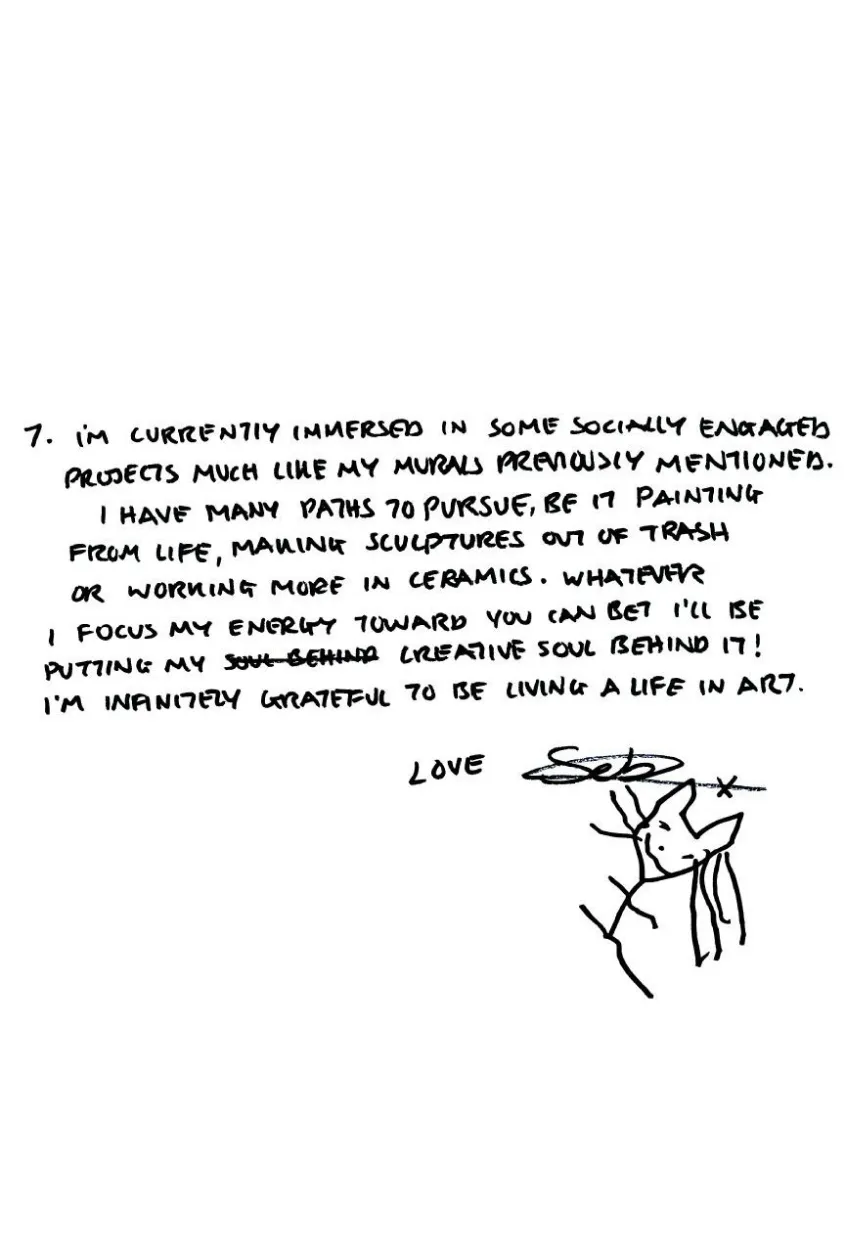 7. I'M CURRENTLY IMMERSED IN SOME SOCIALLY ENGAGED
PROJECTS MUCH LIKE MY MURALS PREVIOUSLY MENTIONED.
I HAVE MANY PATHS TO PURSUE, BE IT PAINTING
FROM LIFE, MAKING SCULPTURES OUT OF TRASH
OR WORKING MORE IN CERAMICS. WHATEVER
I FOCUS MY ENERGY TOWARD YOU CAN BET I'LL BE
PUTTING MY SOUL BEHIND CREATIVE SOUL BEHIND IT!
I'M INFINITELY GRATEFUL TO BE LIVING A LIFE IN ART.
LOVE Seb x